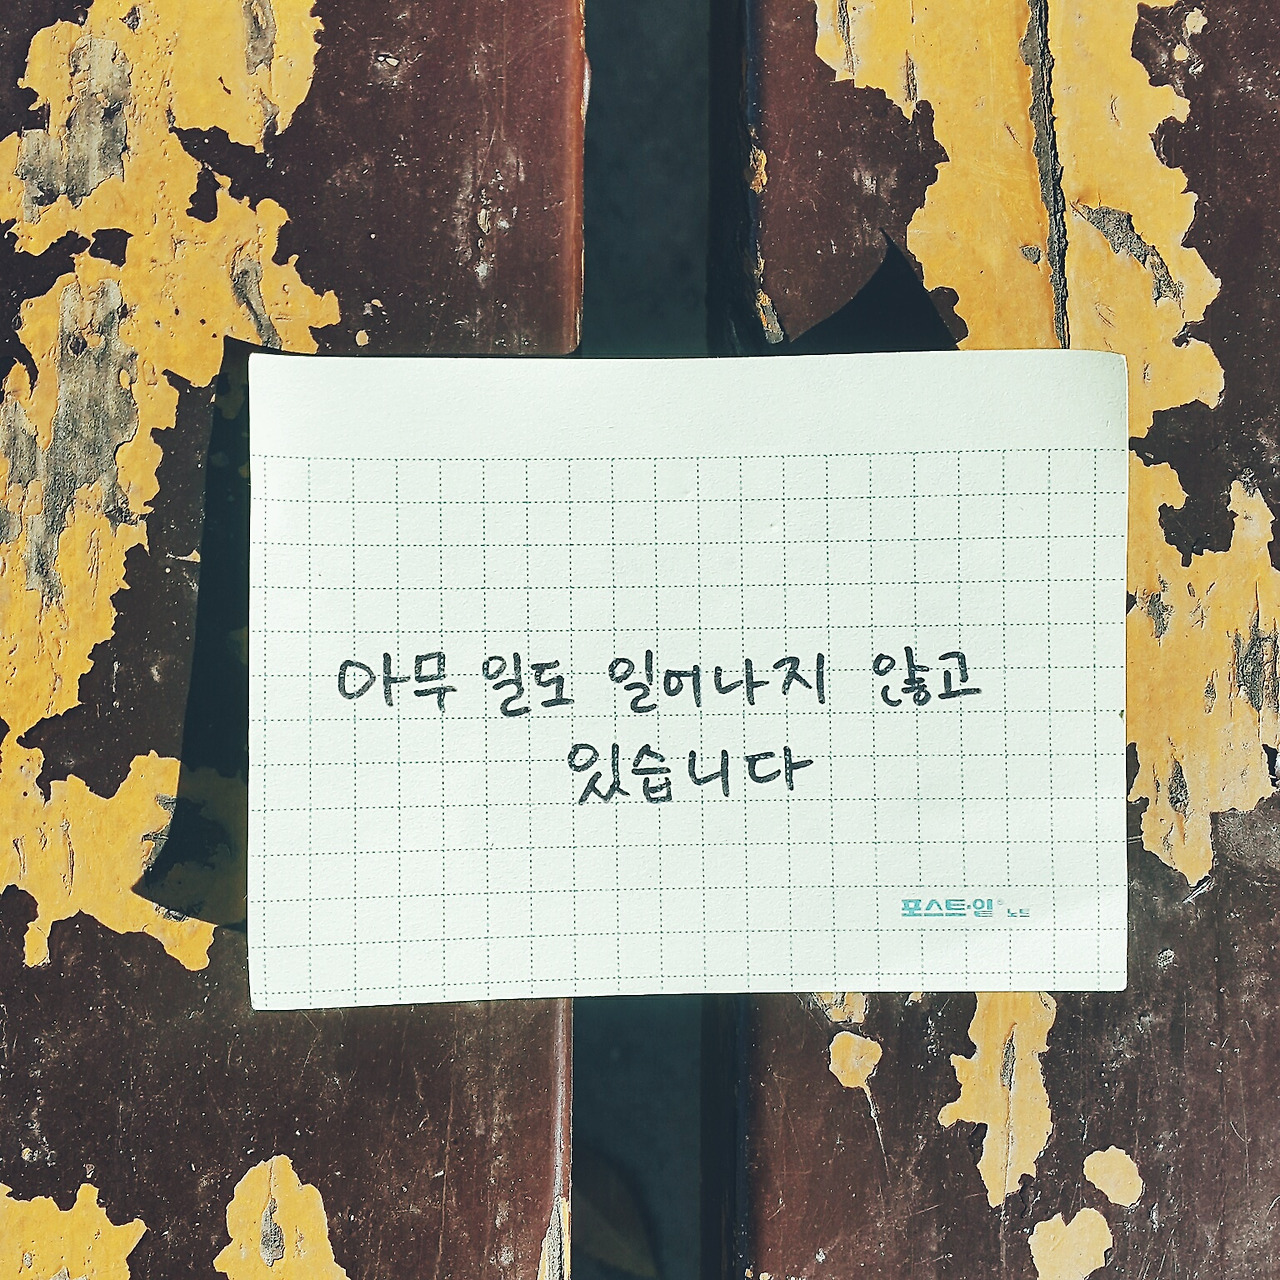 아무 일도 일어나지 않고
있습니다
포스트-잍® 노트